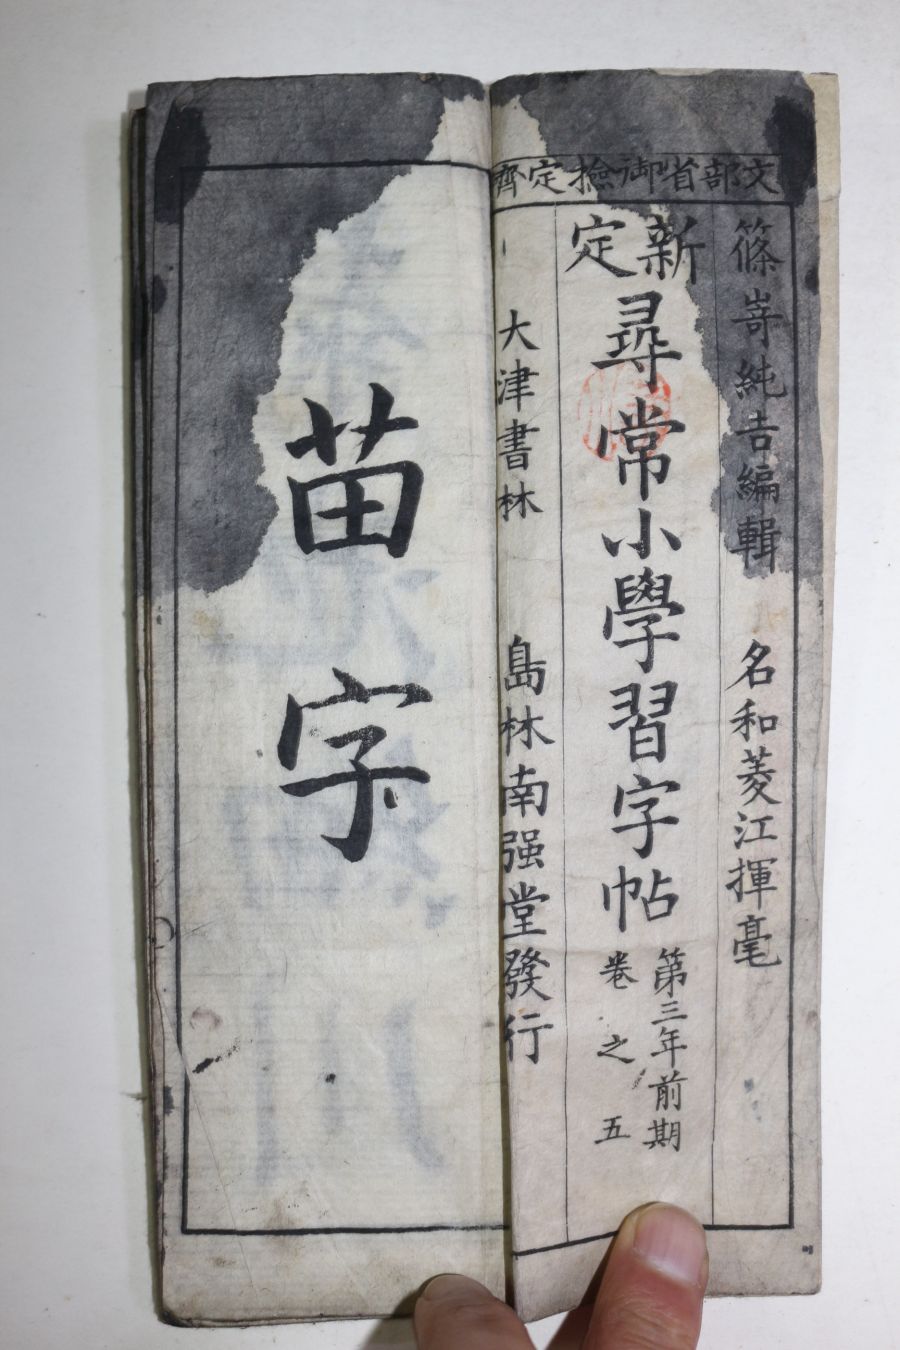 文部省御撿定濟
篠嵜純吉編輯　名和菱江揮毫
新定
尋常小學習字帖
第三年前期
巻之五
大津書林　島林南强堂發行
苗字